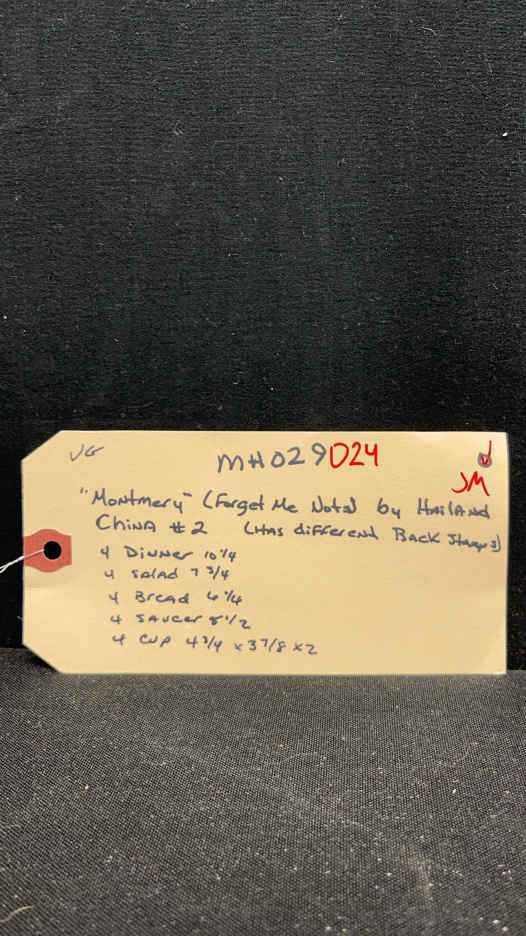 VG
MH029024
JM
"Montmery" (Forget Me Nots) by Haviland
China #2 (Has different Back Stamps)
4 Dinner 10 1/4
4 Salad 7 3/4
4 Bread 6 1/4
4 Saucer 5 1/2
4 Cup 4 3/4 x 3 7/8 x 2